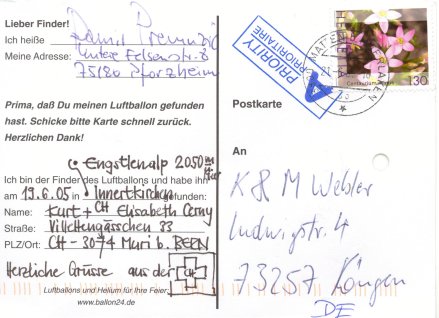 Lieber Finder!
Ich heiße
Meine Adresse: Untere Felsenstr. 8
75180 Pforzheim
Prima, daß Du meinen Luftballon gefunden
hast. Schicke bitte Karte schnell zurück.
Herzlichen Dank!
Engstlenalp 2050 m
Ich bin der Finder des Luftballons und habe ihn
am 19.6.05 in Innertkirchen gefunden:
Name: Kurt + CH Elisabeth Cerny
Straße: Villettengässchen 33
PLZ/Ort: CH - 3074 Muri b. BERN
Herzliche Grüsse aus der CH
Luftballons und Helium für Ihre Feier:
www.ballon24.de
PRIORITY
PRIORITAIRE
A
130
Postkarte
An
K & M Webler
Ludwigstr. 4
73257 Köngen
DE